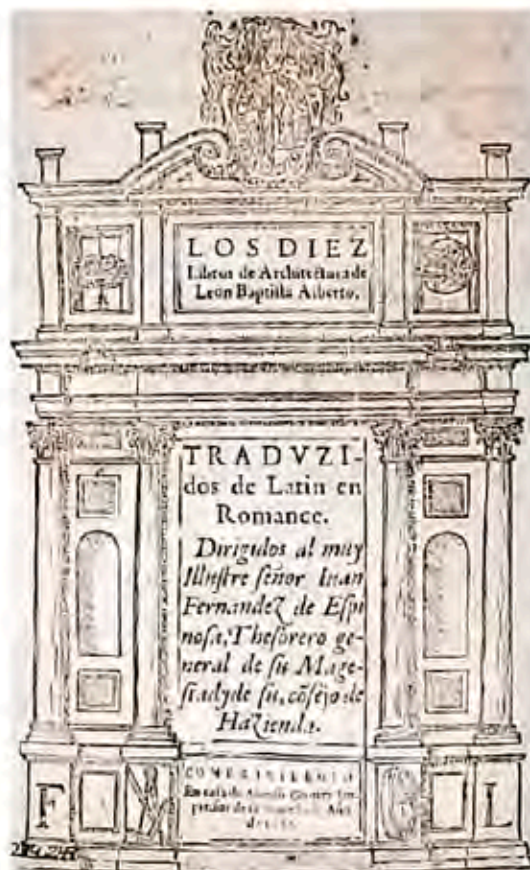 LOS DIEZ
Libros de Architectura de
Leon Baptista Alberto.
TRADVZI-
dos de Latin en
Romance.
Dirigidos al muy
Illustre señor Iuan
Fernandez de Espi
nosa, Thesorero ge-
neral de su Mage-
stad, y de su cõsejo de
Hazienda.
CON PRIVILEGIO
En casa de Alonso Gomez Im-
pressor de
F
L